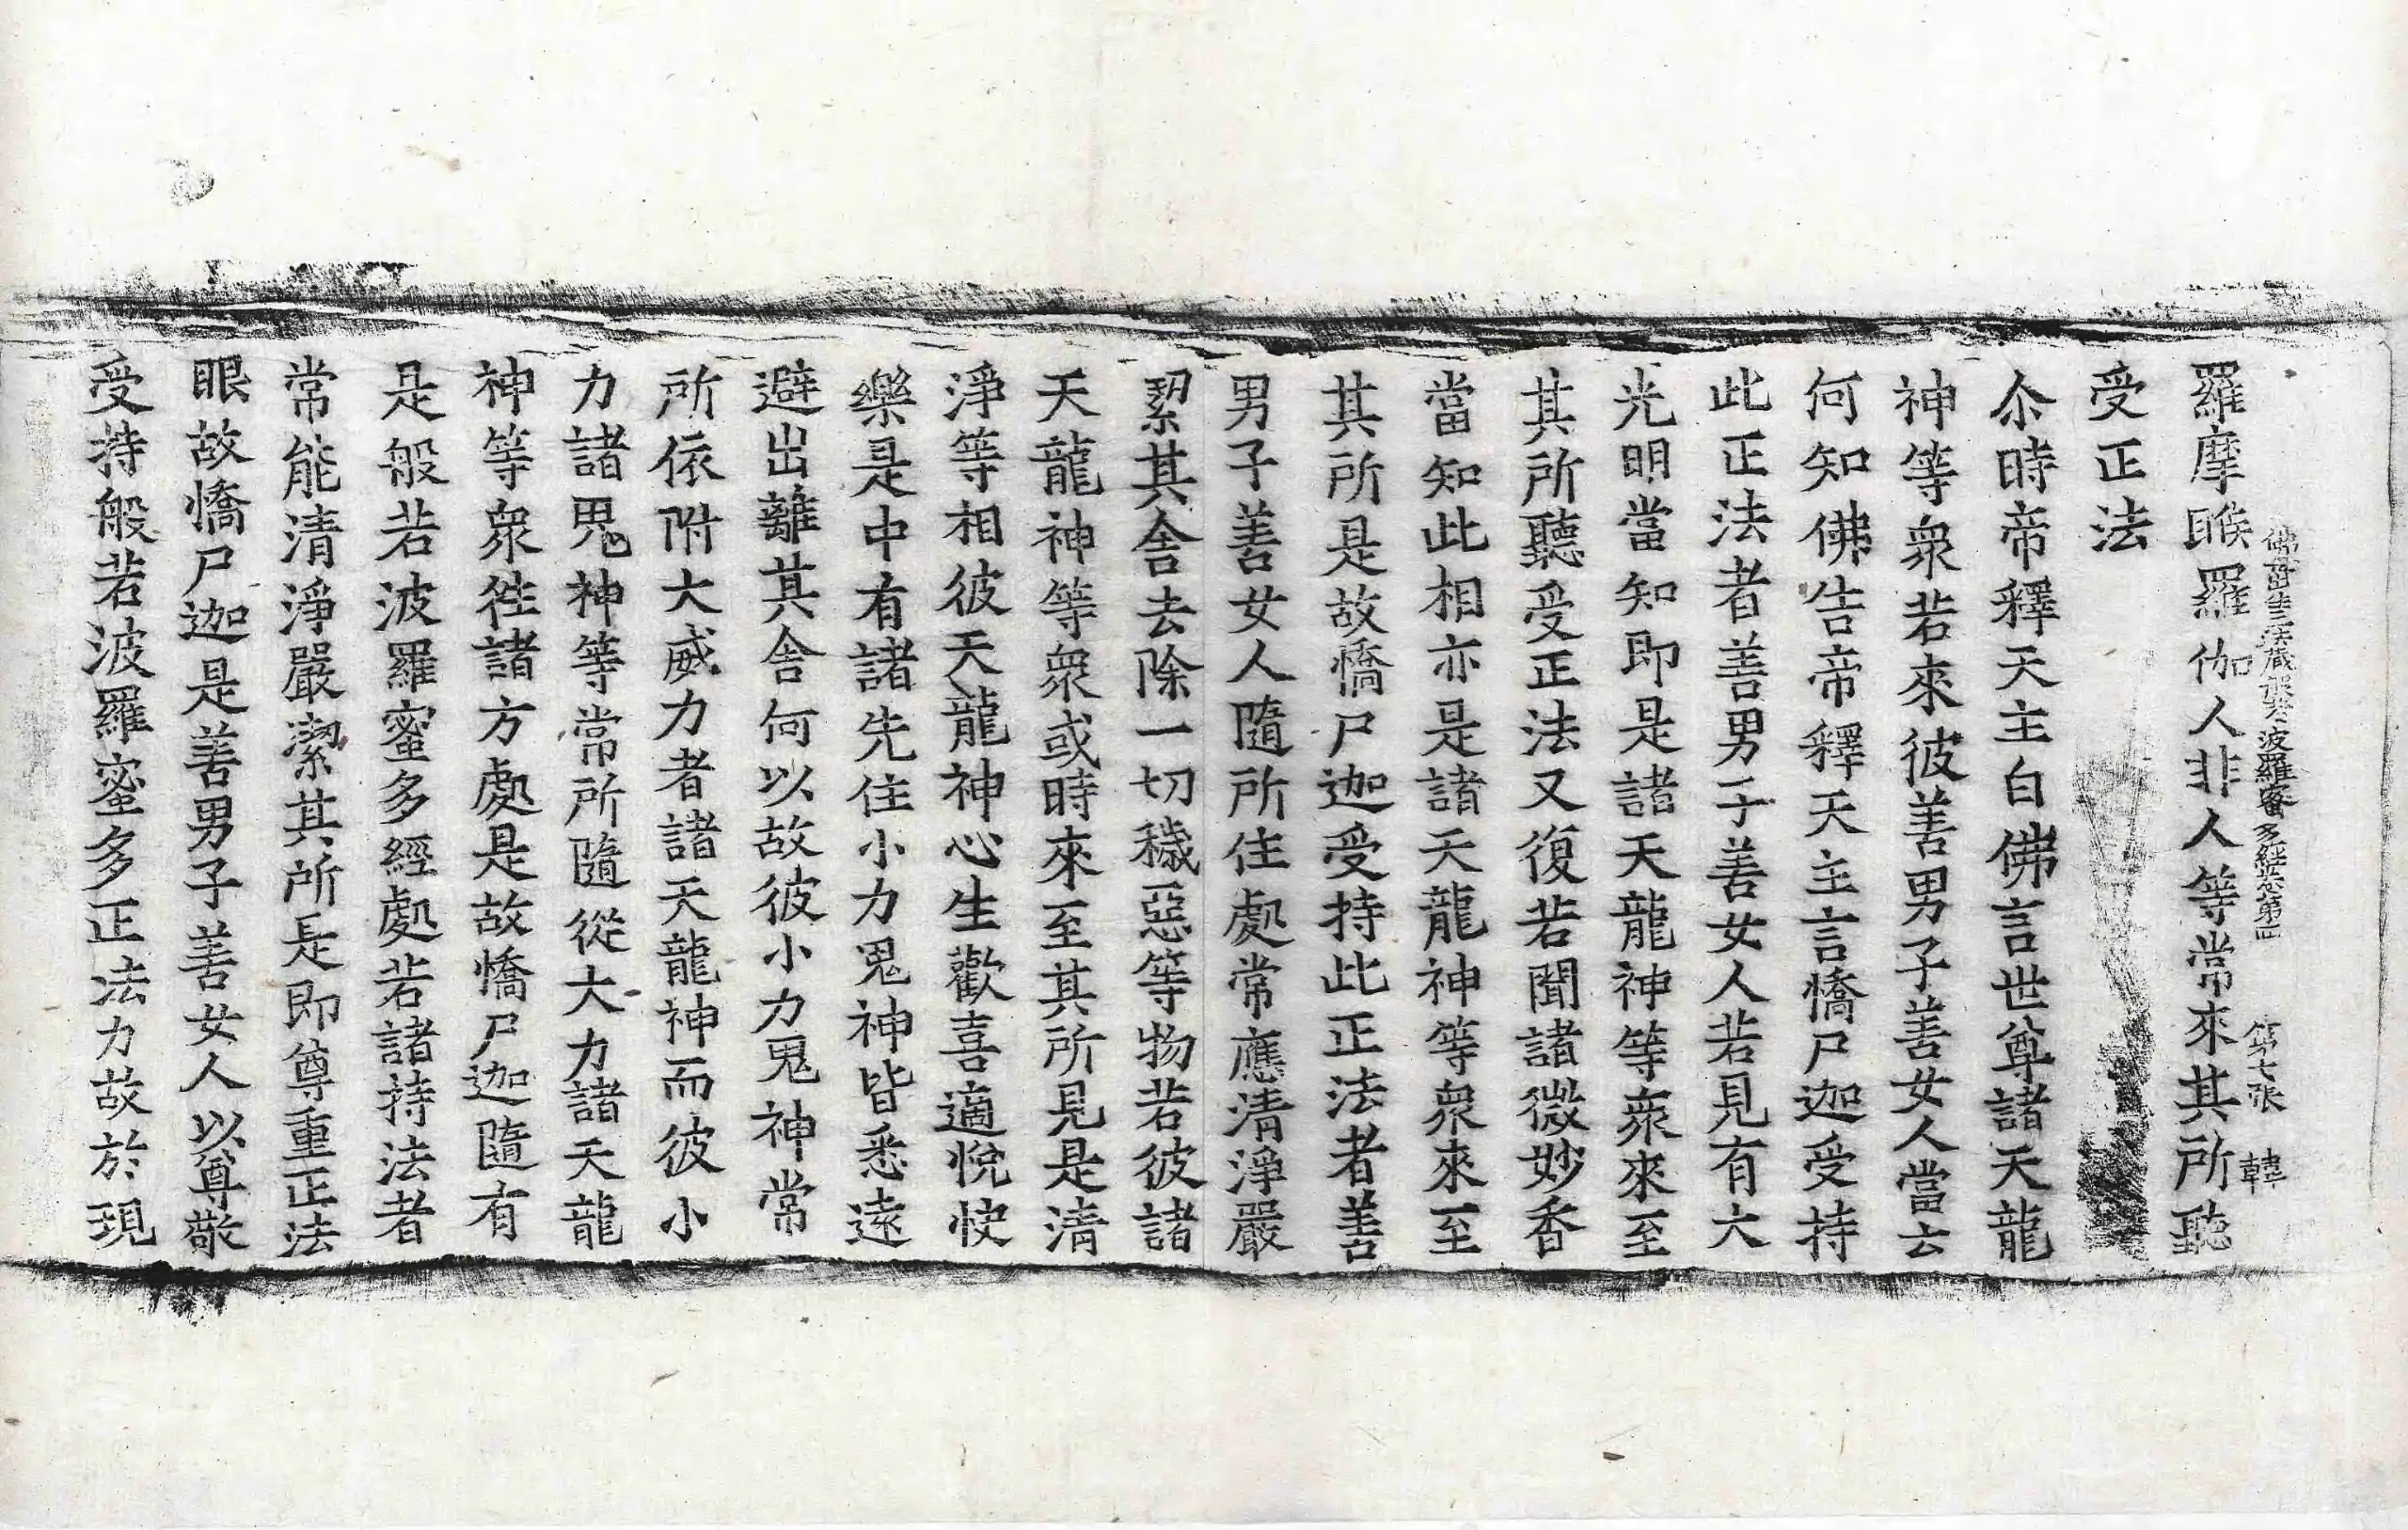 佛母出生三法藏般若波羅蜜多經卷第四 第七張 韓
羅摩睺羅伽人非人等常來其所聽
受正法
尒時帝釋天主白佛言世尊諸天龍
神等衆若來彼善男子善女人當云
何知佛告帝釋天主言憍尸迦受持
此正法者善男子善女人若見有大
光明當知即是諸天龍神等衆來至
其所聽受正法又復若聞諸微妙香
當知此相亦是諸天龍神等衆來至
其所是故憍尸迦受持此正法者善
男子善女人隨所住處常應清淨嚴
潔其舍去除一切穢惡等物若彼諸
天龍神等衆或時來至其所見是清
淨等相彼天龍神心生歡喜適悅快
樂是中有諸先住小力鬼神皆悉遠
避出離其舍何以故彼小力鬼神常
所依附大威力者諸天龍神而彼小
力諸鬼神等常所隨從大力諸天龍
神等衆徃諸方處是故憍尸迦隨有
是般若波羅蜜多經處若諸持法者
常能清淨嚴潔其所是即尊重正法
眼故憍尸迦是善男子善女人以尊敬
受持般若波羅蜜多正法力故於現